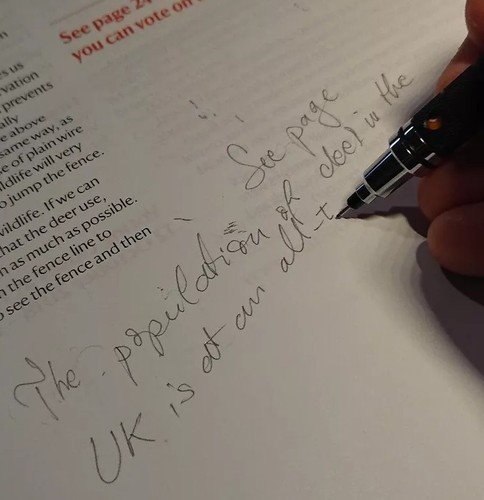 See page 24
you can vote on
es us
rvation
prevents
ally
e above
same way, as
se of plain wire
ildlife will very
o jump the fence.
wildlife. If we can
hat the deer use,
n as much as possible.
n the fence line to
o see the fence and then
See page
The population of deer in the
UK is at an all-t